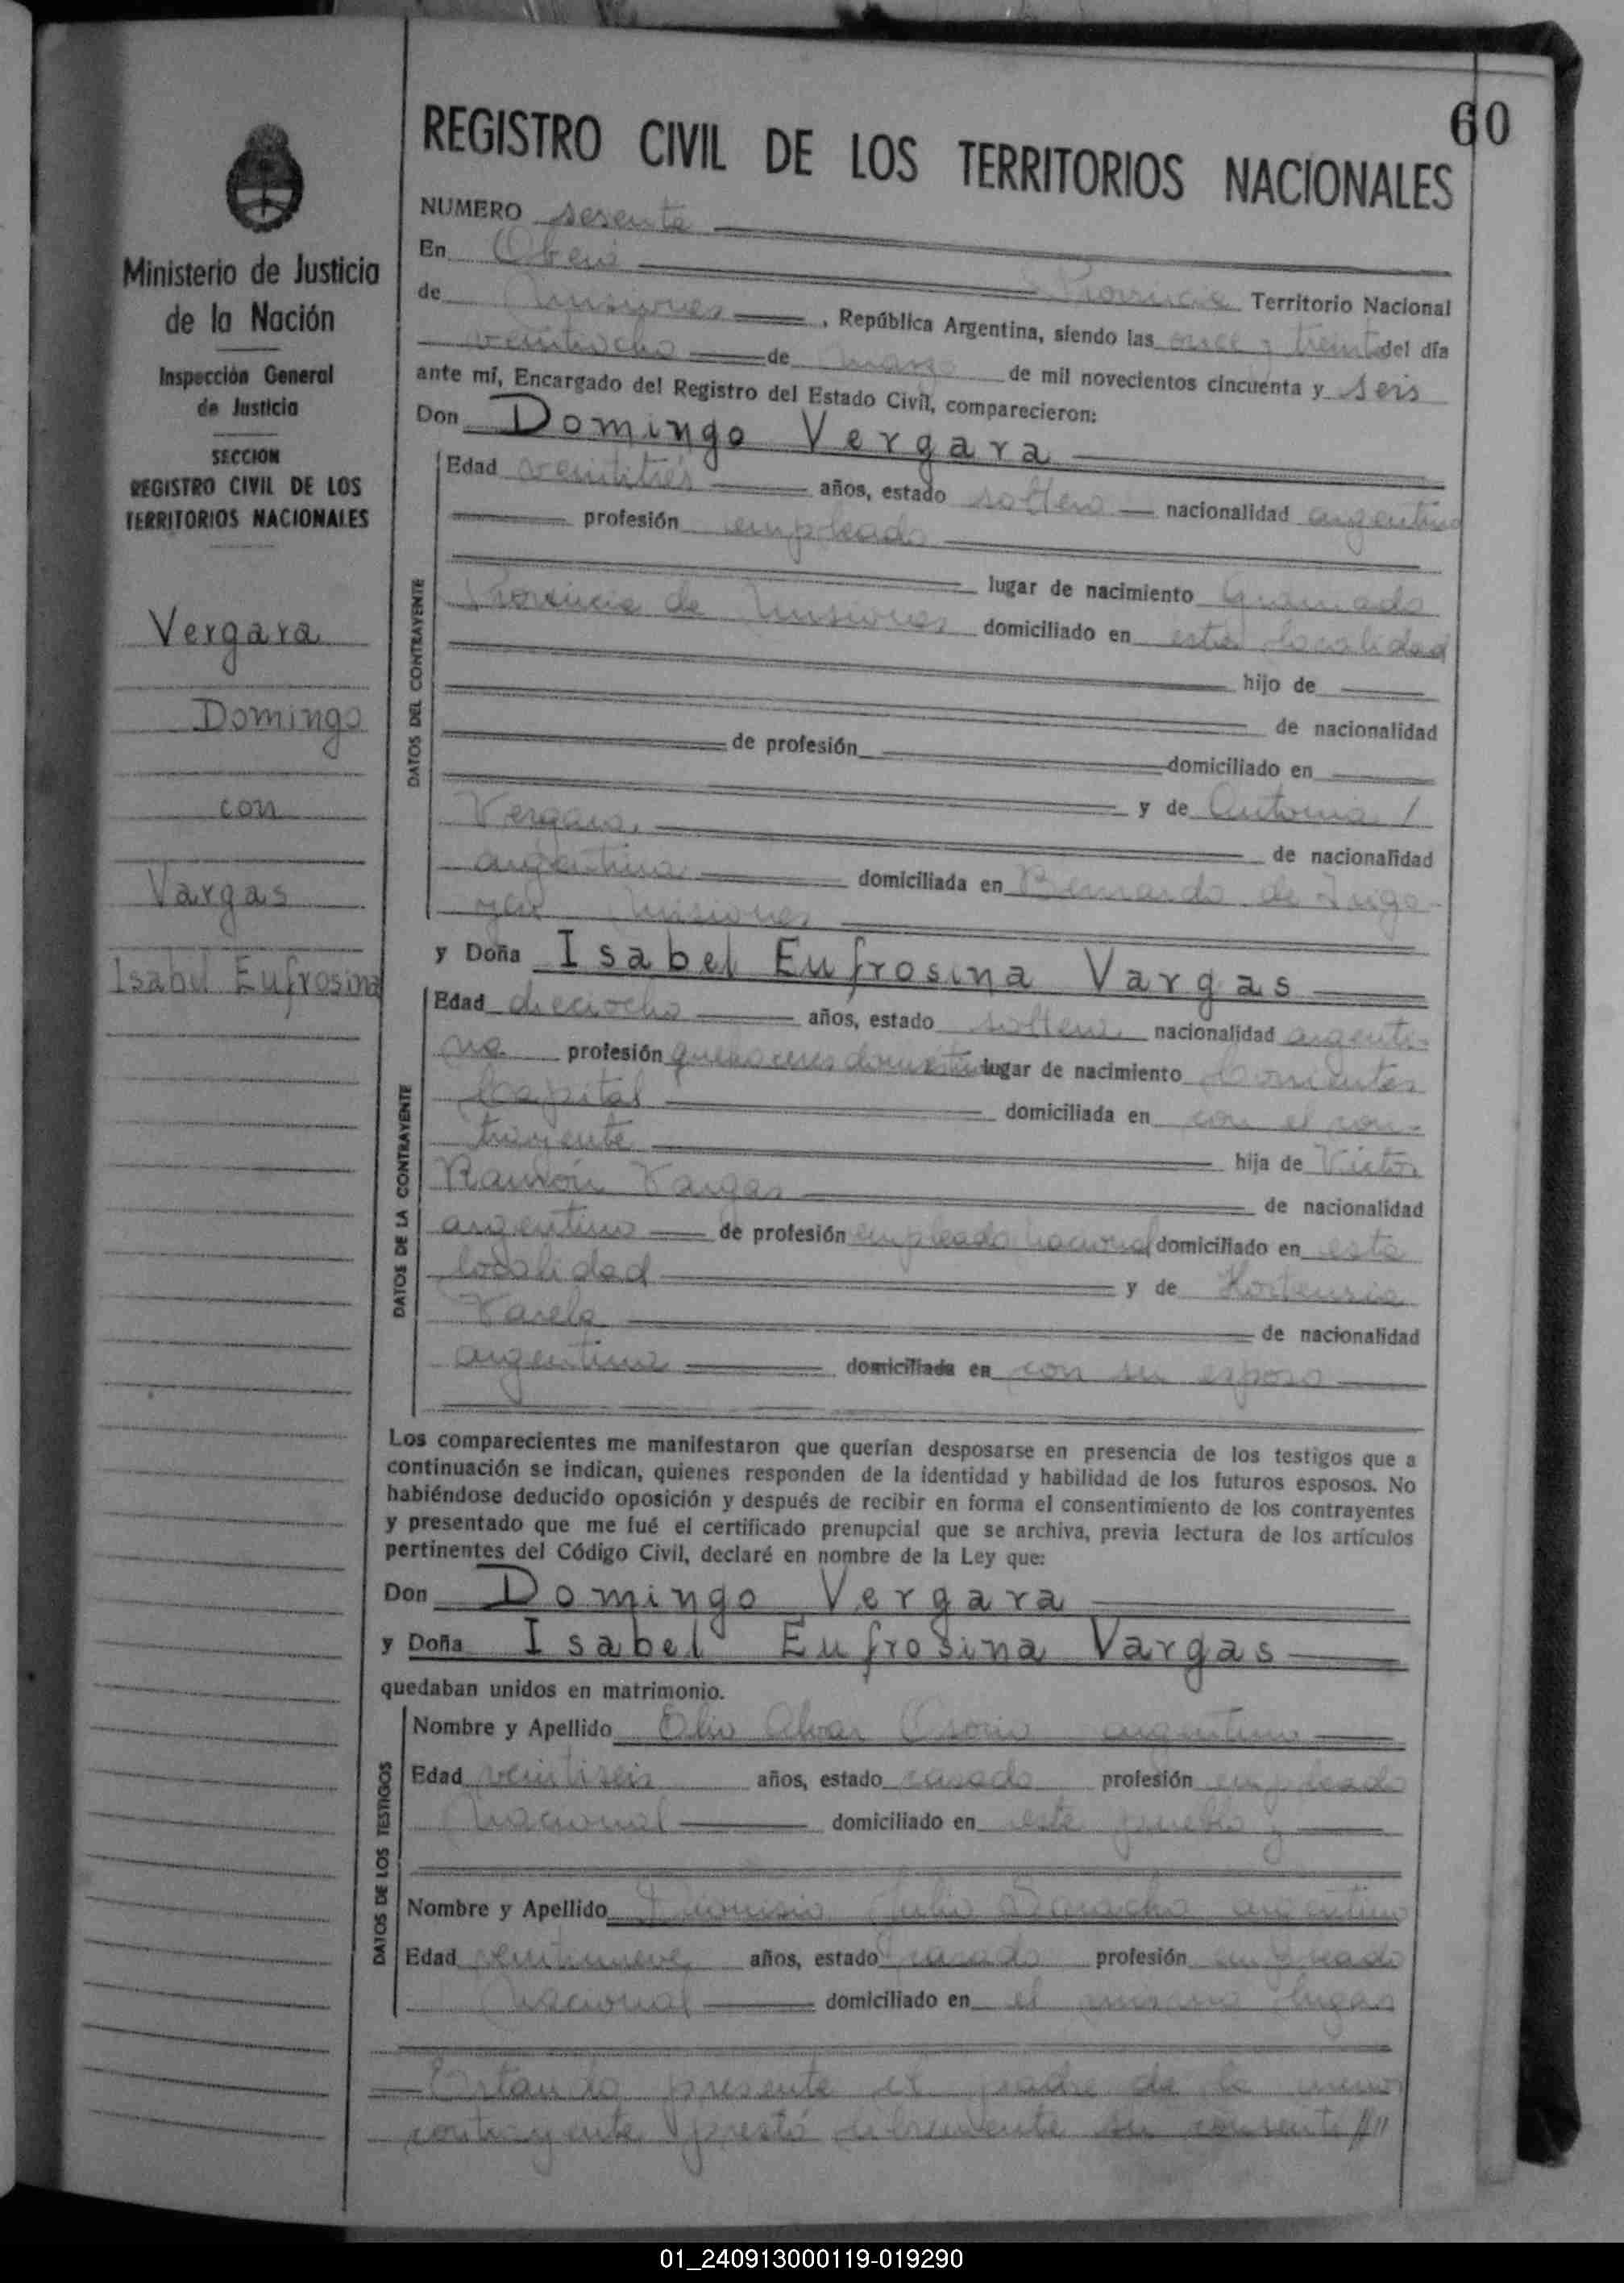 60
REGISTRO CIVIL DE LOS TERRITORIOS NACIONALES
Ministerio de Justicia
de la Nación
Inspección General
de Justicia
SECCION
REGISTRO CIVIL DE LOS
TERRITORIOS NACIONALES
Vergara
Domingo
con
Vargas
Isabel Eufrosina
NUMERO sesenta
En Oberá
Provincia Territorio Nacional
de Misiones, República Argentina, siendo las once y treinta del día
veintiocho de marzo de mil novecientos cincuenta y seis
ante mí, Encargado del Registro del Estado Civil, comparecieron:
Don Domingo Vergara
DATOS DEL CONTRAYENTE
Edad veintitrés años, estado soltero nacionalidad argentino
profesión empleado
lugar de nacimiento
Provincia de Misiones domiciliado en esta localidad
hijo de
de nacionalidad
de profesión domiciliado en
y de Antonia /
Vergara, de nacionalidad
argentina domiciliada en Bernardo de Irigo-
yen Misiones
y Doña Isabel Eufrosina Vargas
DATOS DE LA CONTRAYENTE
Edad dieciocho años, estado soltera nacionalidad argenti-
na profesión quehaceres domésticos lugar de nacimiento Corrientes
Capital domiciliada en con el con-
trayente hija de Victor
Ramón Vargas de nacionalidad
argentino de profesión empleado nacional domiciliado en esta
localidad y de Hortensia
Varela de nacionalidad
argentina domiciliada en con su esposo
Los comparecientes me manifestaron que querían desposarse en presencia de los testigos que a
continuación se indican, quienes responden de la identidad y habilidad de los futuros esposos. No
habiéndose deducido oposición y después de recibir en forma el consentimiento de los contrayentes
y presentado que me fué el certificado prenupcial que se archiva, previa lectura de los artículos
pertinentes del Código Civil, declaré en nombre de la Ley que:
Don Domingo Vergara
y Doña Isabel Eufrosina Vargas
quedaban unidos en matrimonio.
DATOS DE LOS TESTIGOS
Nombre y Apellido Osorio argentino
Edad veintiseis años, estado casado profesión empleado
Nacional domiciliado en este pueblo y
Nombre y Apellido Dionisio Julio argentino
Edad veintinueve años, estado casado profesión empleado
Nacional domiciliado en el mismo lugar
Estando presente el padre de la menor
contrayente prestó libremente su consenti //
01_240913000119-019290